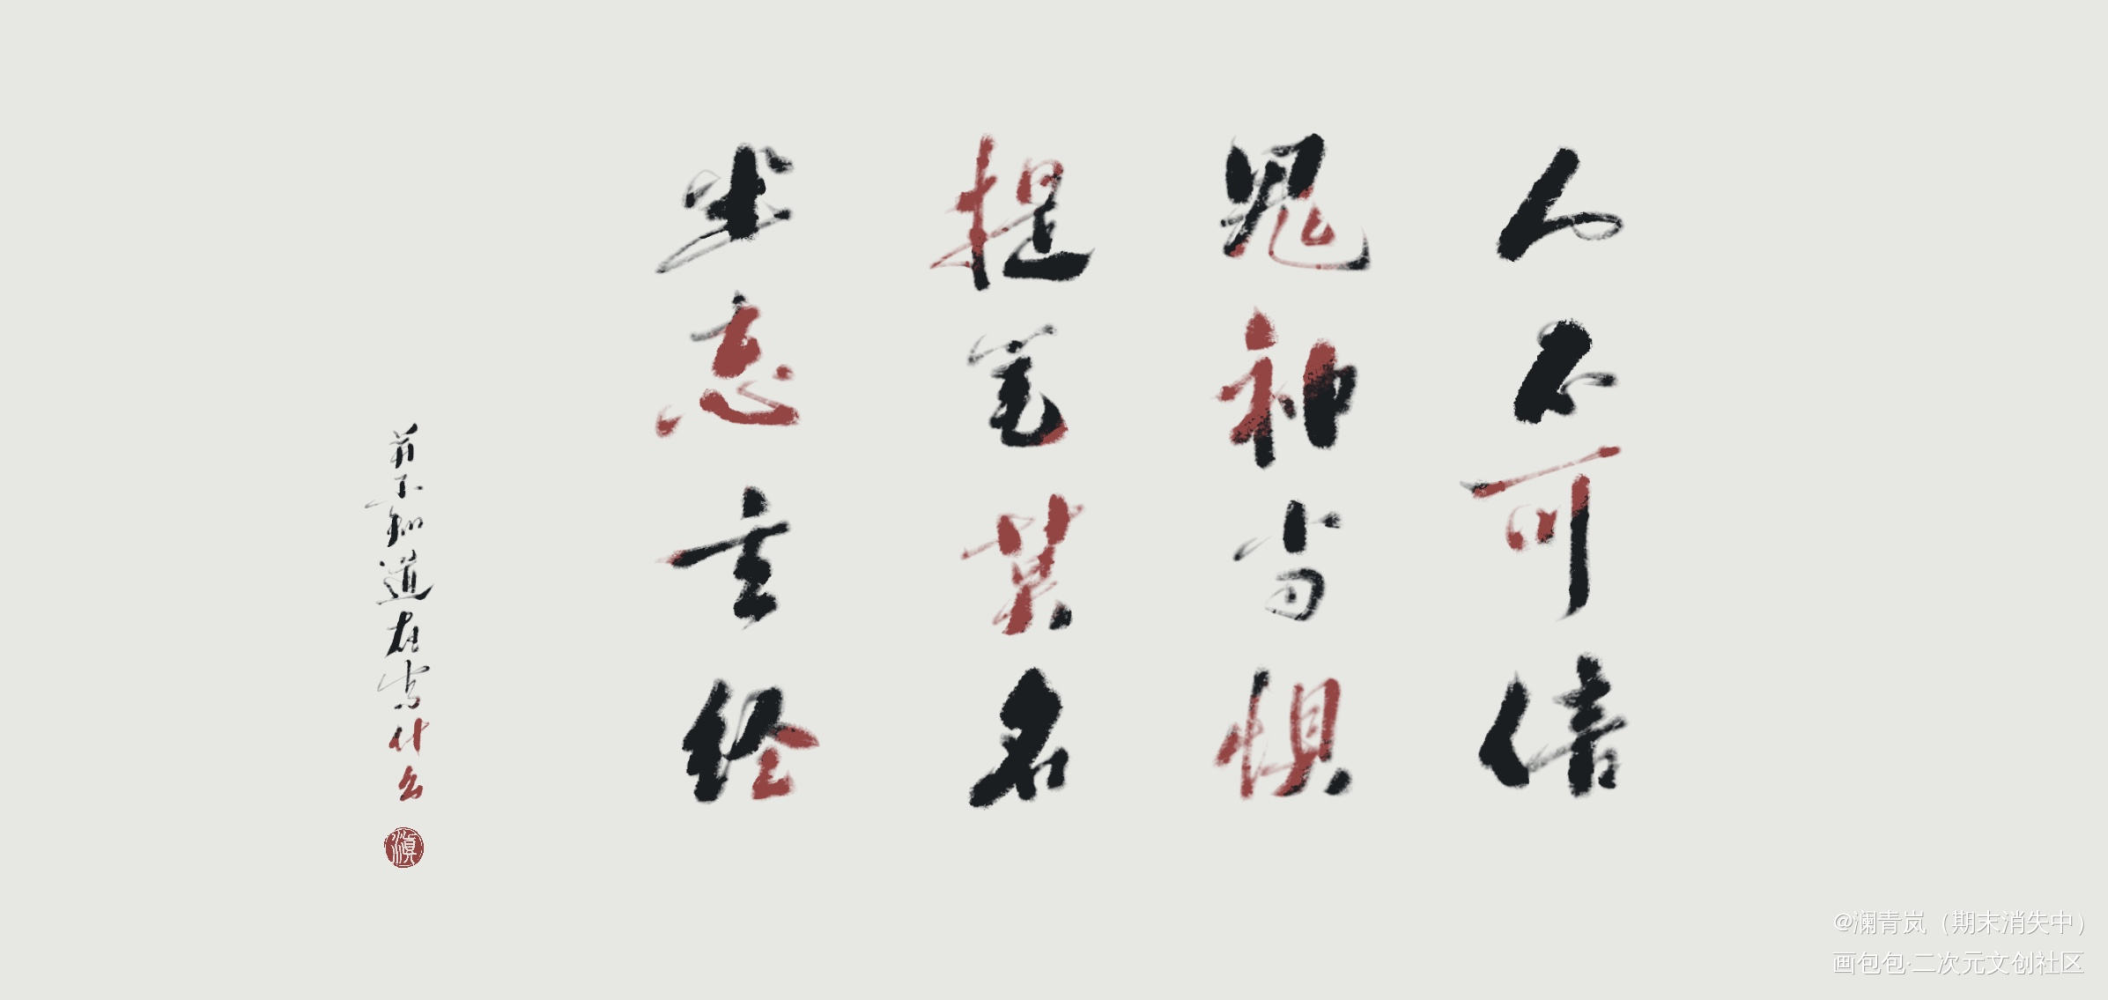 人不可信
鬼神当惧
提笔莫名
坐忘玄经
并不知道在写什么
滇
@澜青岚（期末消失中）
画包包·二次元文创社区